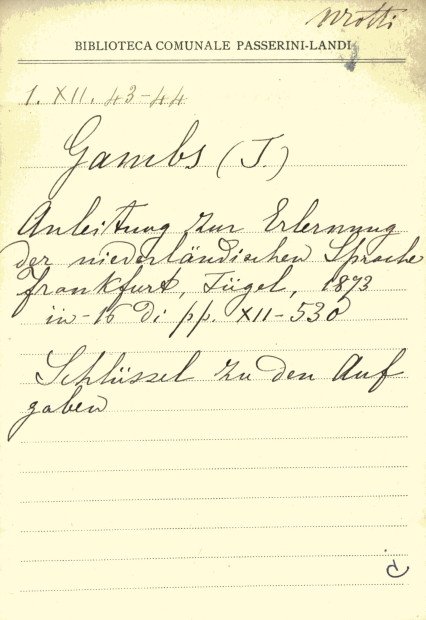 BIBLIOTECA COMUNALE PASSERINI-LANDI
1. XII. 43-44
Gambs (T.)
Anleitung zur Erlernung
der niederländischen Sprache
Frankfurt, Tügel, 1873
in-16 di pp. XII-530
Schlüssel zu den Auf
gaben